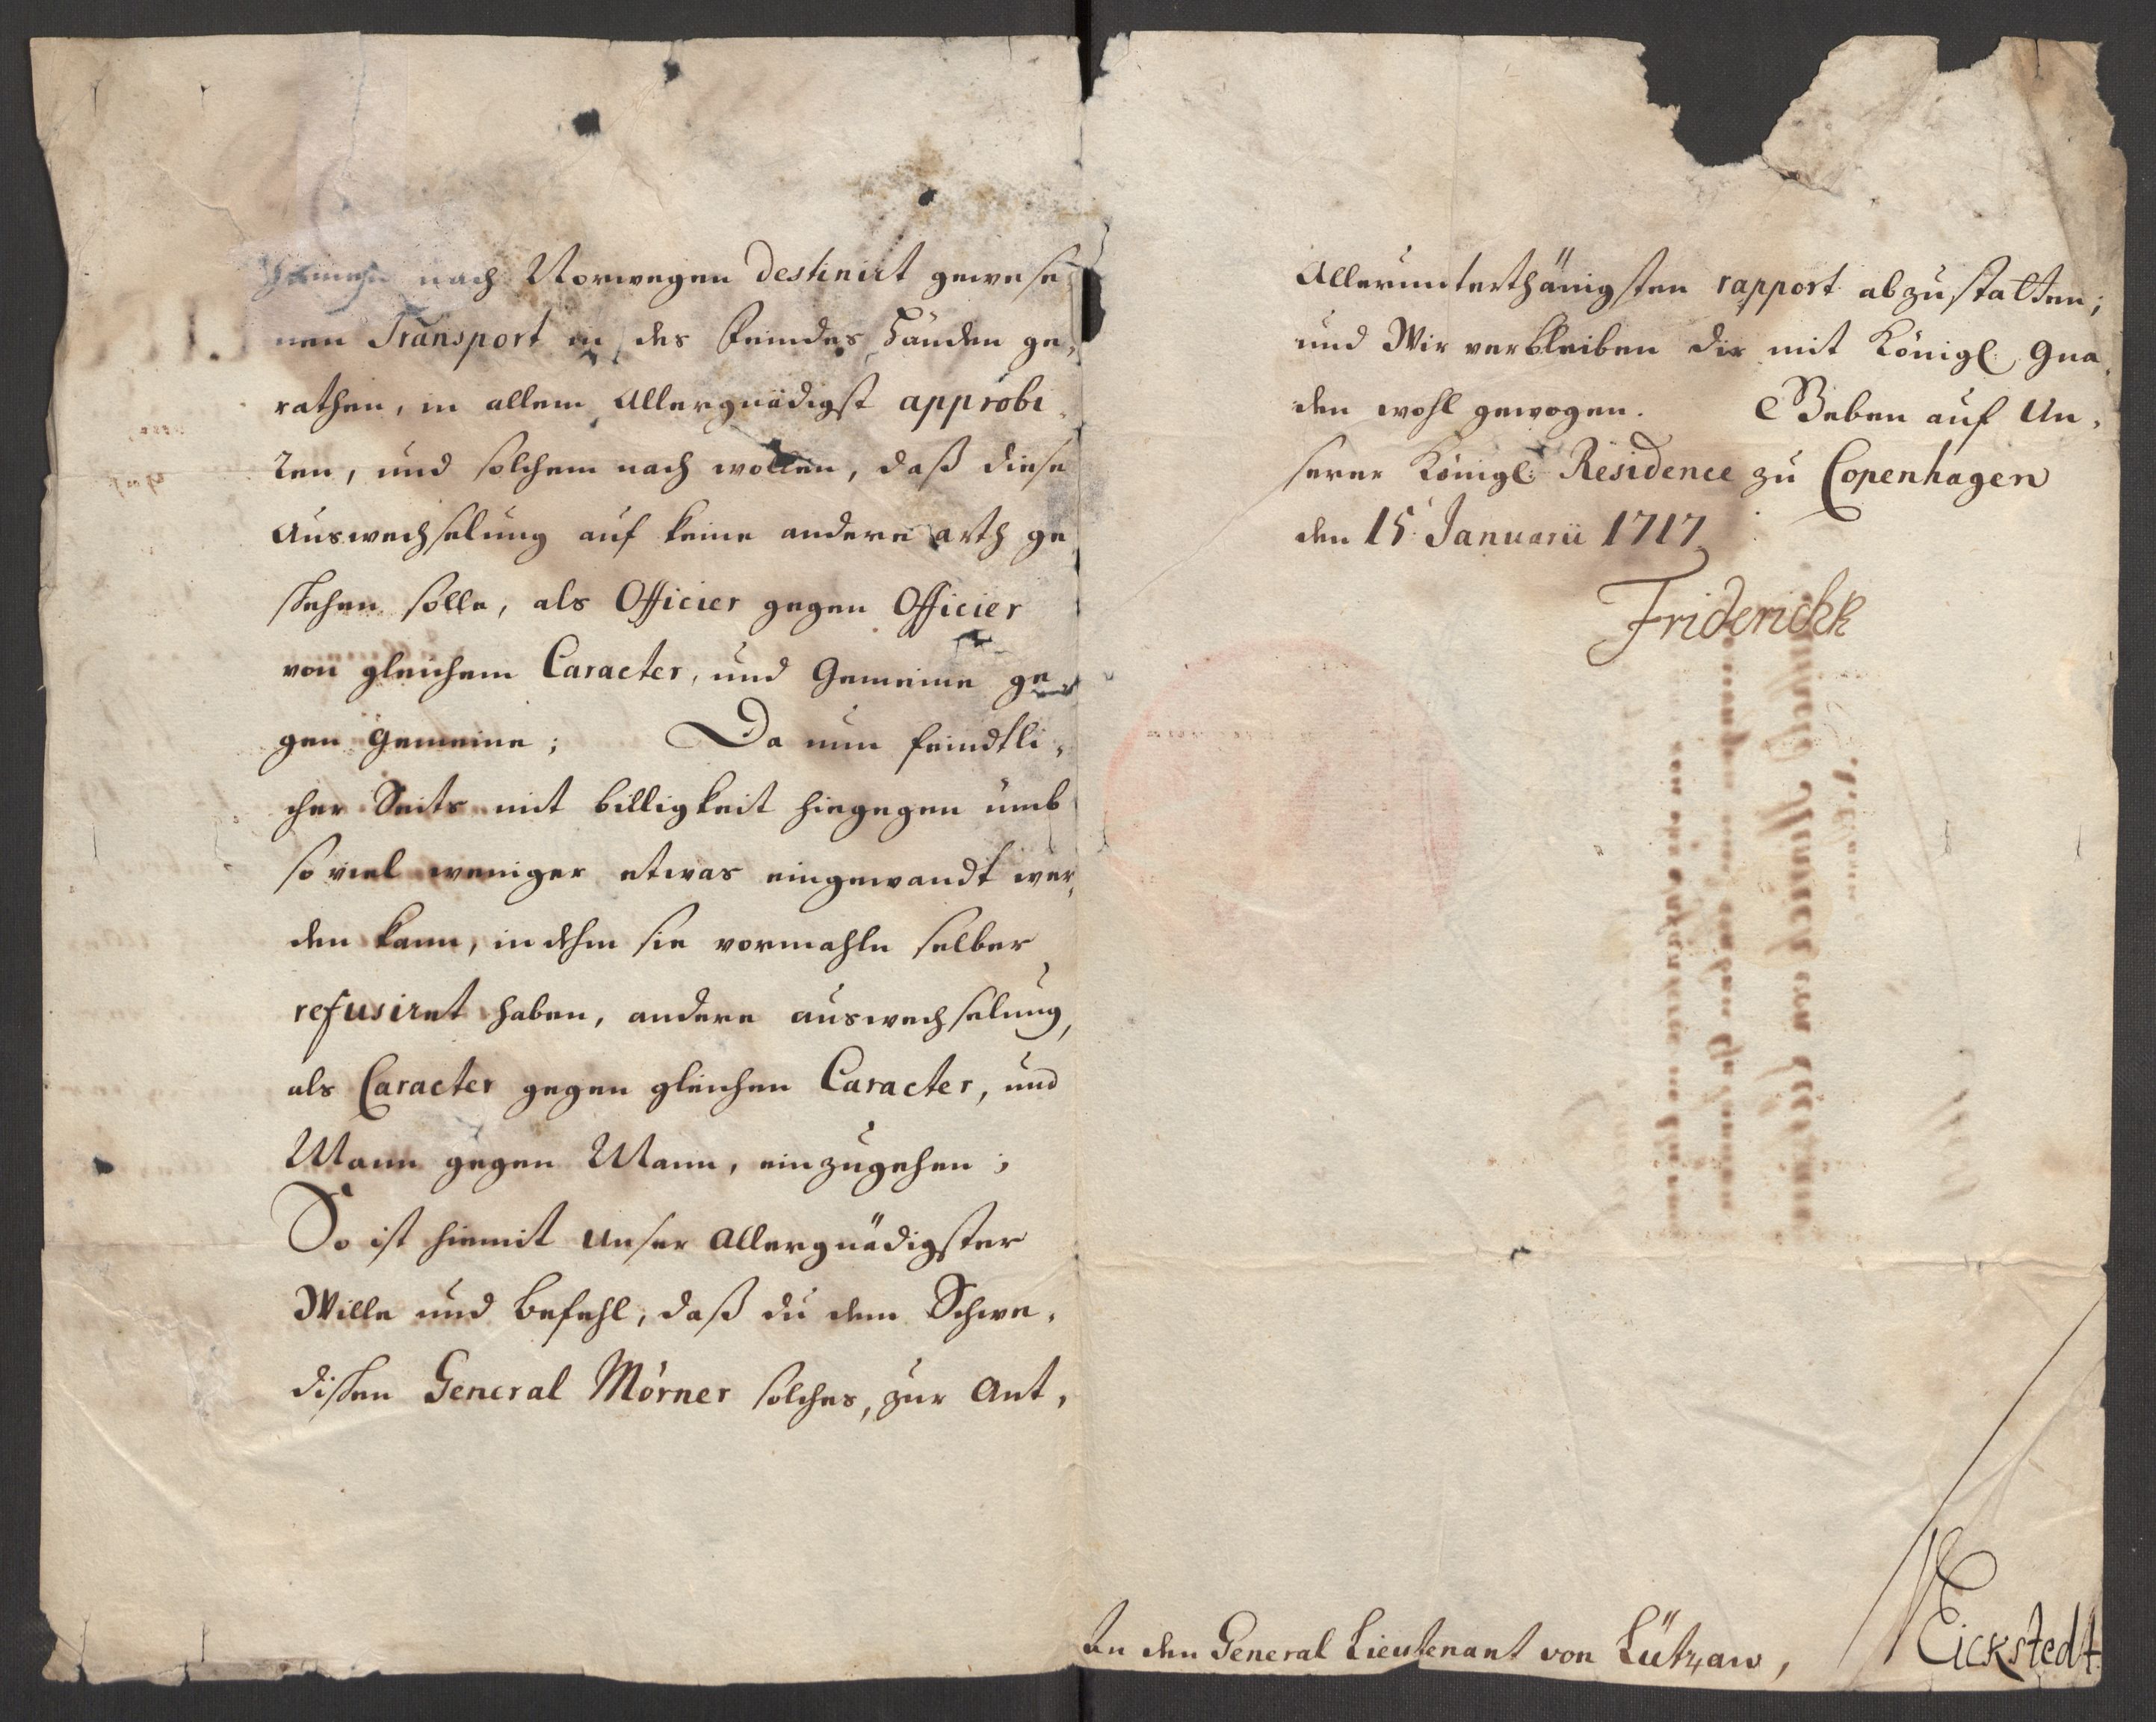 nach Norwegen destinirt gewese
nen Transport in des Feindes Händen ge,
rathen, in allem Allergnädigst approbi
ren, und solchem nach wollen, daß diese
Auswechselung auf keine andere arth ge
schehen solle, als Officier gegen Officier
von gleichem Caracter, und Gemeine ge
gen Gemeine; Da nun feindtli,
cher Seits mit billigkeit hiegegen ümb
so viel weniger etwas eingewandt wer,
den kann, in dehm sie vormahls selber
refusiret haben, andere auswechselung,
als Caracter gegen gleichen Caracter, und
Mann gegen Mann, einzugehen;
So ist hiemit Unser Allergnädigster
Wille und Befehl, daß du dem Schwe,
dischen General Mörner solches, zur Ant,
Allerunterthänigsten rapport abzustatten;
und Wir verbleiben dir mit Königl. Gna,
den wohl gewogen. Geben auf Un,
serer Königl. Residence zu Copenhagen
den 15. Januarii 1717
Friderich R
An den General Lieutenant von Lützaw,
Eickstedt